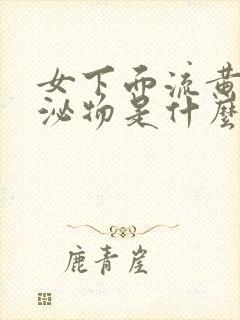 女下面流黄
泌物是什麼
鹿青崖